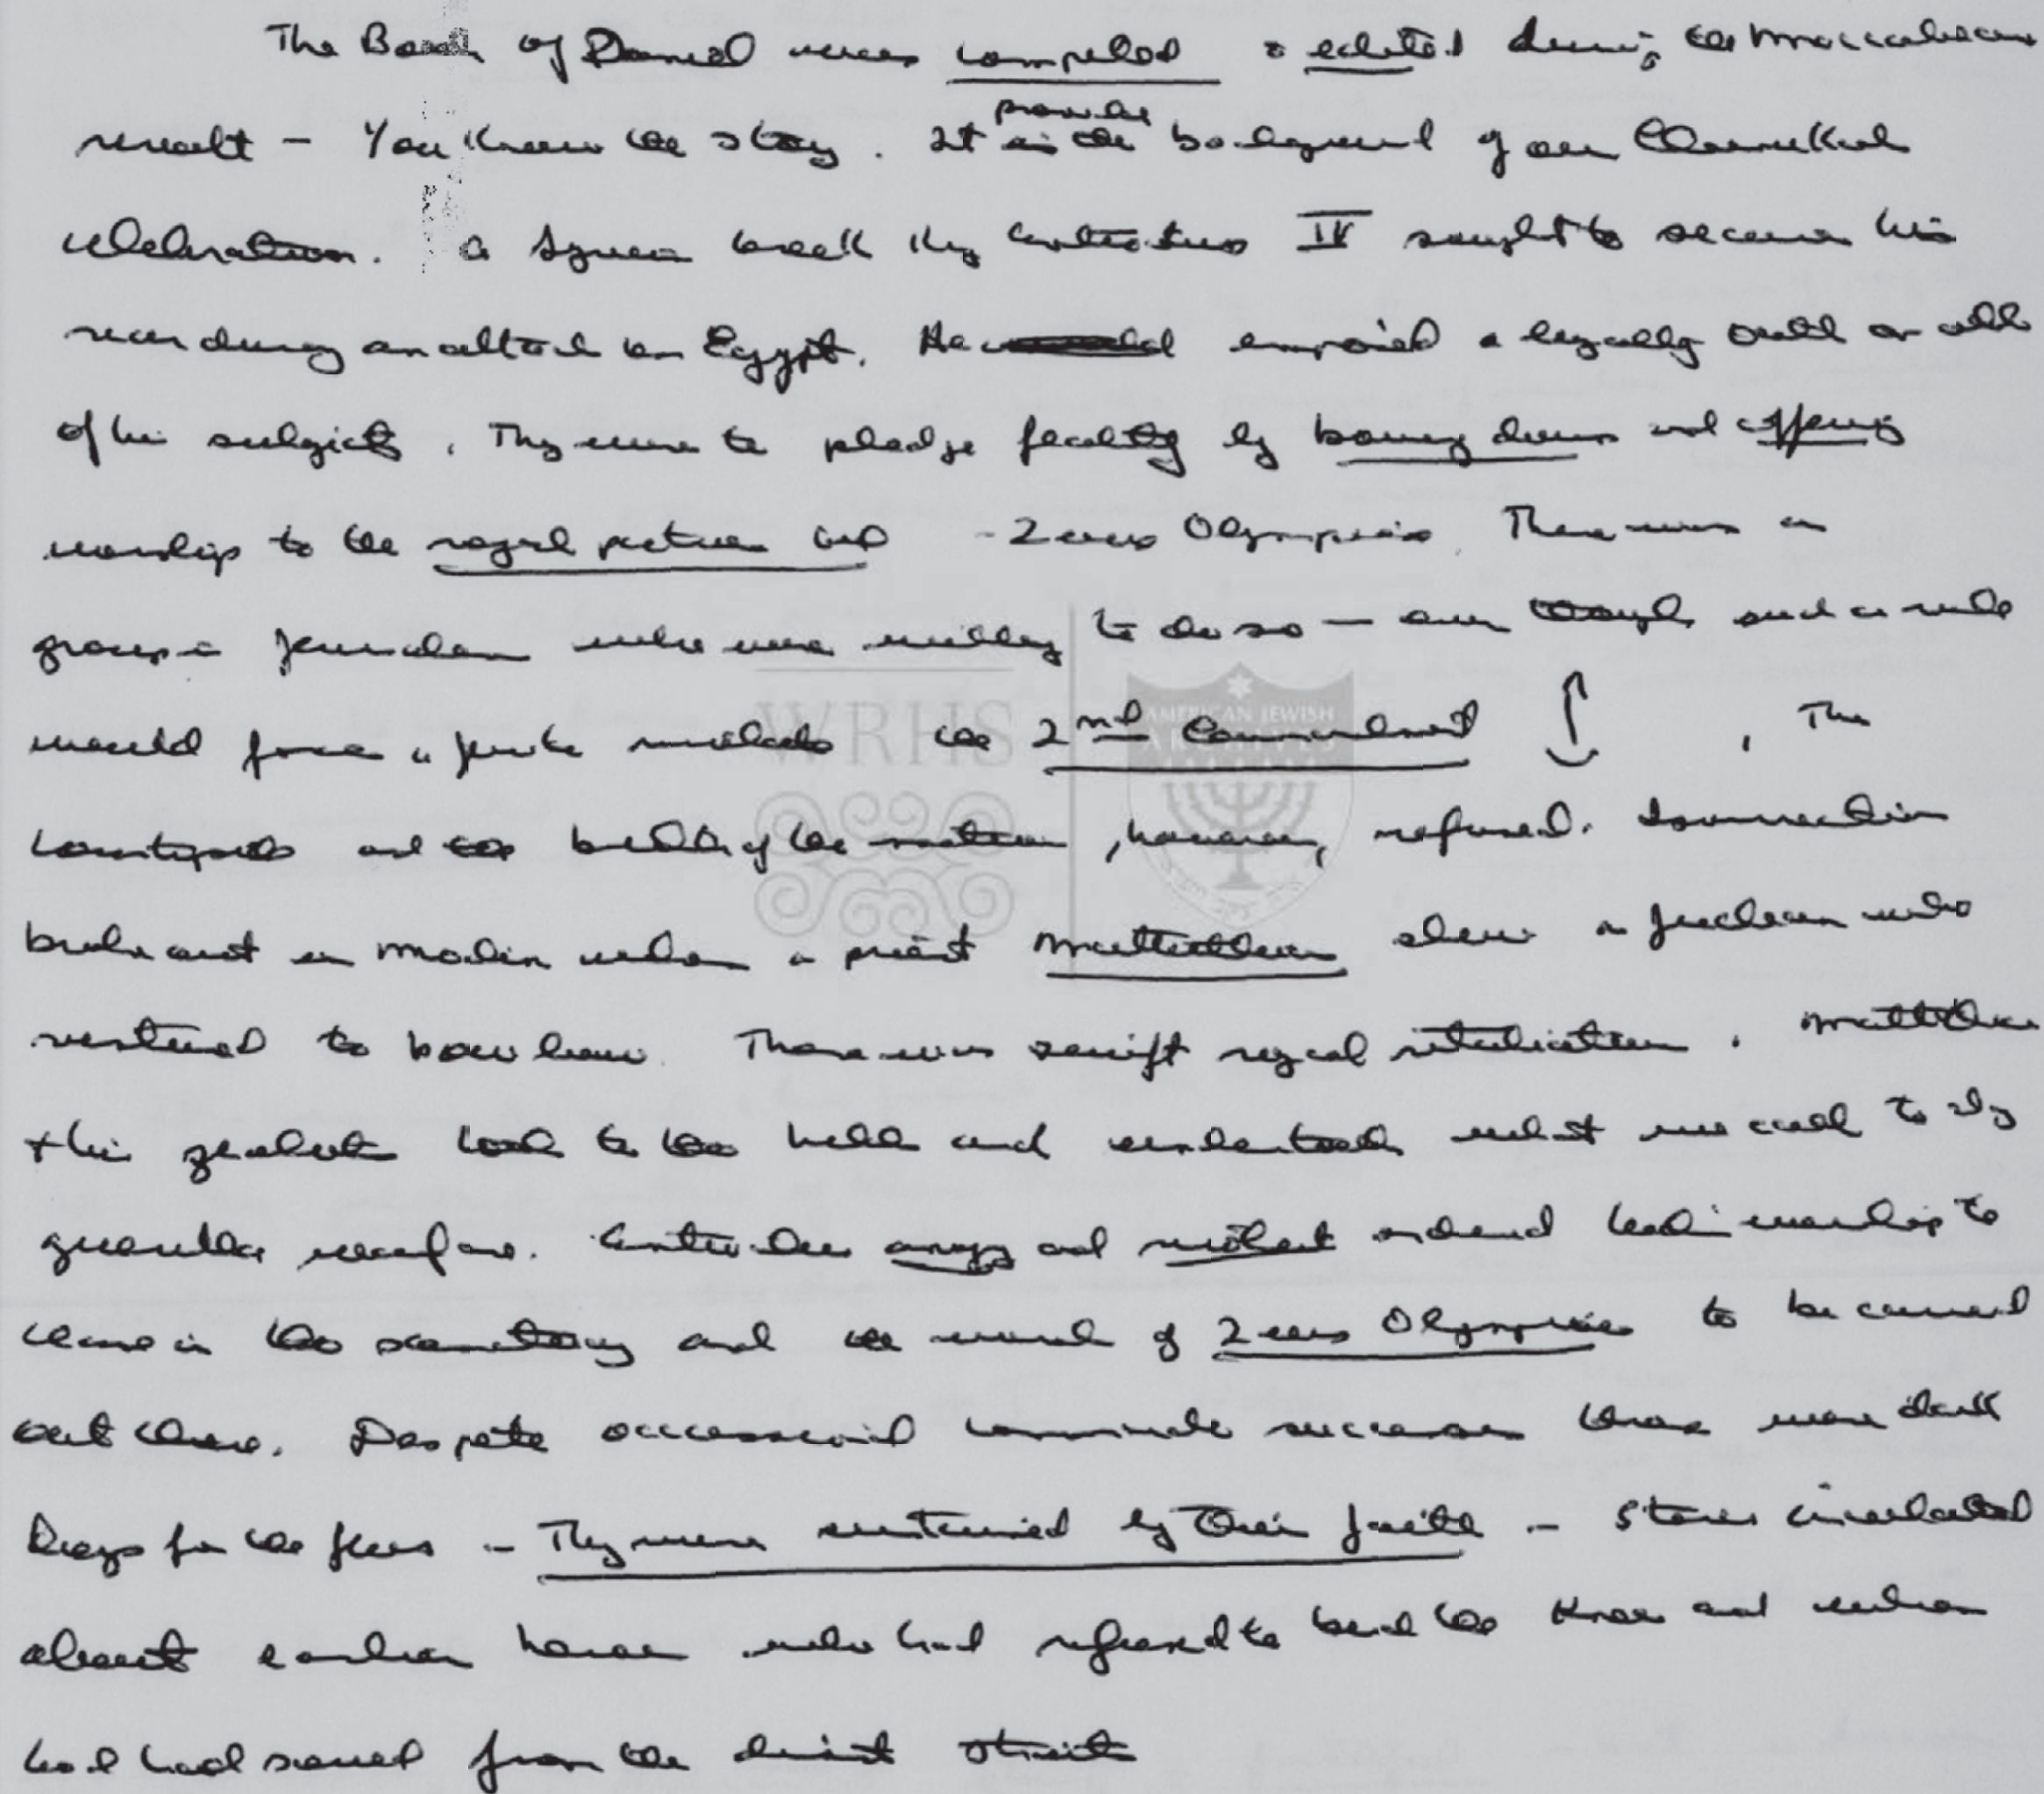 The Book of Daniel was compiled & edited during the Maccabean
revolt – You know the story. It provides the background of our Chanukah
celebration. A Syrian Greek King Antiochus IV sought to secure his
rear during an attack on Egypt. He imposed a loyalty oath on all
of his subjects. They were to pledge fealty by bowing down and offering
worship to the royal patron God - Zeus Olympias. There was a
group in Jerusalem who were willing to do so – even though such a rule
would force a Jew to violate the 2nd Commandment, The
countryside and the bulk of the nation, however, refused. Insurrection
broke out in Modin when a priest Mattathias slew a Judean who
ventured to bow down. There was swift royal retaliation. Mattathias
+ his zealots took to the hills and undertook what we call to day
guerilla warfare. Antiochus angry and violent ordered God's worship to
cease in the sanctuary and the worship of Zeus Olympias to be carried
out there. Despite occasional successes these were dark
Days for the Jews – They were sustained by their faith – Stories circulated
about earlier heroes who had refused to bend the knee and whom
God had saved from the direst straits